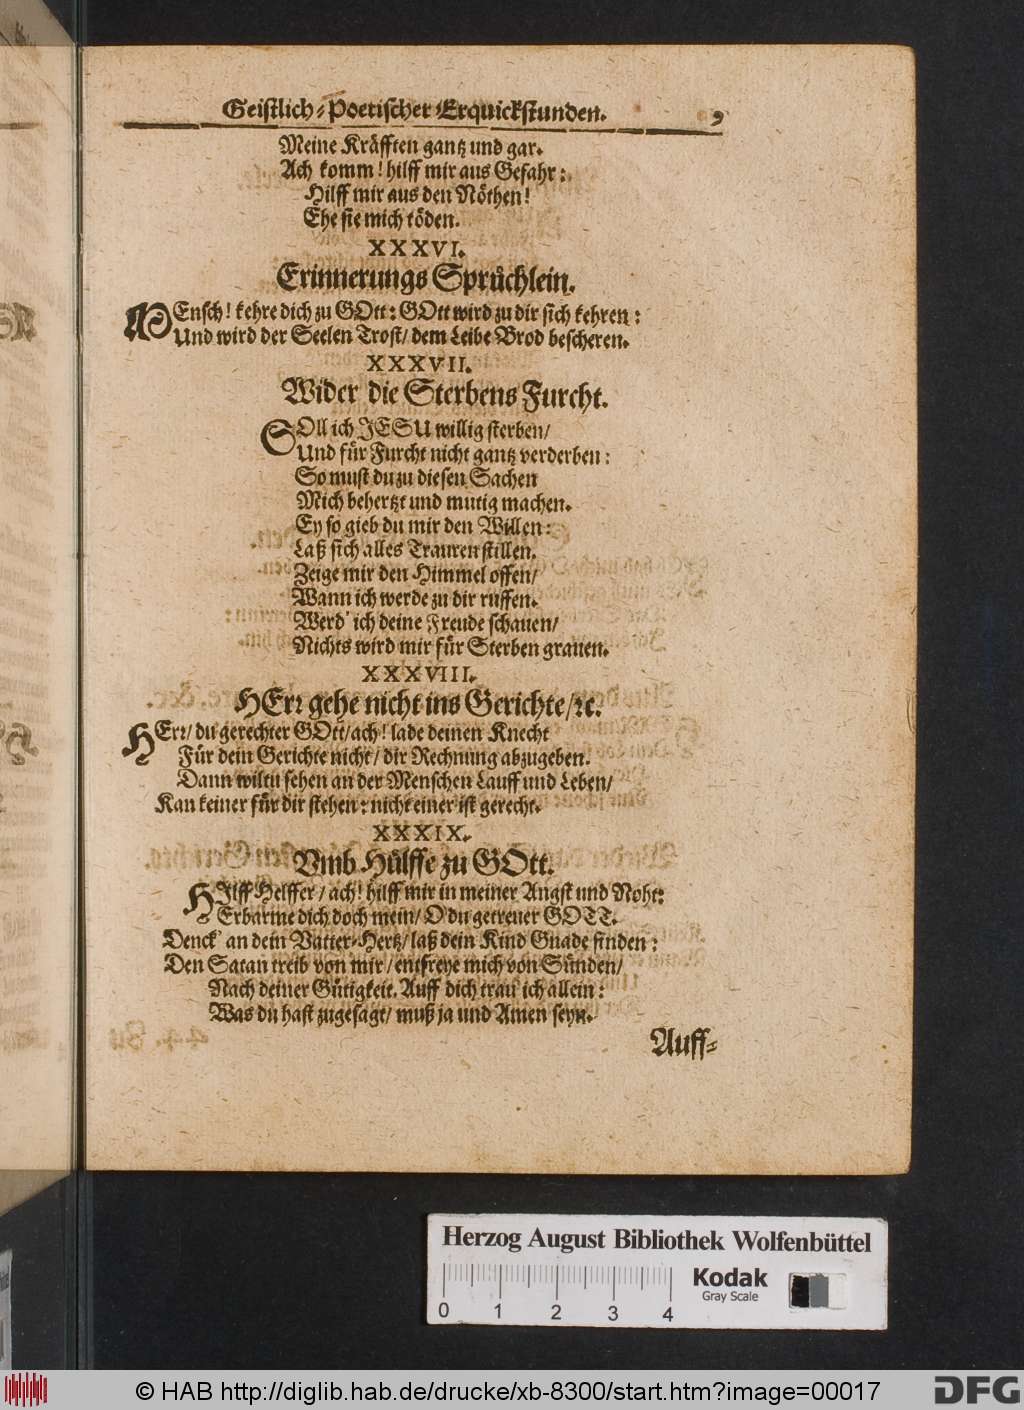 Geistlich-Poetischer Erquickstunden. 9
Meine Kräfften gantz und gar.
Ach komm! hilff mir aus Gefahr:
Hilff mir aus den Nöthen!
Ehe sie mich töden.
XXXVI.
Erinnerungs Sprüchlein.
MEnsch! kehre dich zu GOtt: GOtt wird zu dir sich kehren:
Und wird der Seelen Trost/ dem Leibe Brod bescheren.
XXXVII.
Wider die Sterbens Furcht.
SOll ich JESU willig sterben/
Und für Furcht nicht gantz verderben:
So must du zu diesen Sachen
Mich behertzt und mutig machen.
Ey so gieb du mir den Willen:
Laß sich alles Trauren stillen.
Zeige mir den Himmel offen/
Wann ich werde zu dir ruffen.
Werd' ich deine Freude schauen/
Nichts wird mir für Sterben grauen.
XXXVIII.
HErr gehe nicht ins Gerichte/ ꝛc.
HErr/ du gerechter GOtt/ ach! lade deinen Knecht
Für dein Gerichte nicht/ dir Rechnung abzugeben.
Dann wiltu sehen an der Menschen Lauff und Leben/
Kan keiner für dir stehen: nicht einer ist gerecht.
XXXIX.
Vmb Hülffe zu GOtt.
HIlff Helffer/ ach! hilff mir in meiner Angst und Noht:
Erbarme dich doch mein/ O du getreuer GOTT.
Denck' an dein Vatter-Hertz/ laß dein Kind Gnade finden:
Den Satan treib von mir/ entfreye mich von Sünden/
Nach deiner Gütigkeit. Auff dich trau' ich allein:
Was du hast zugesagt/ muß ja und Amen seyn.
Auff-
Herzog August Bibliothek Wolfenbüttel
Kodak
Gray Scale
0 1 2 3 4
© HAB http://diglib.hab.de/drucke/xb-8300/start.htm?image=00017
DFG